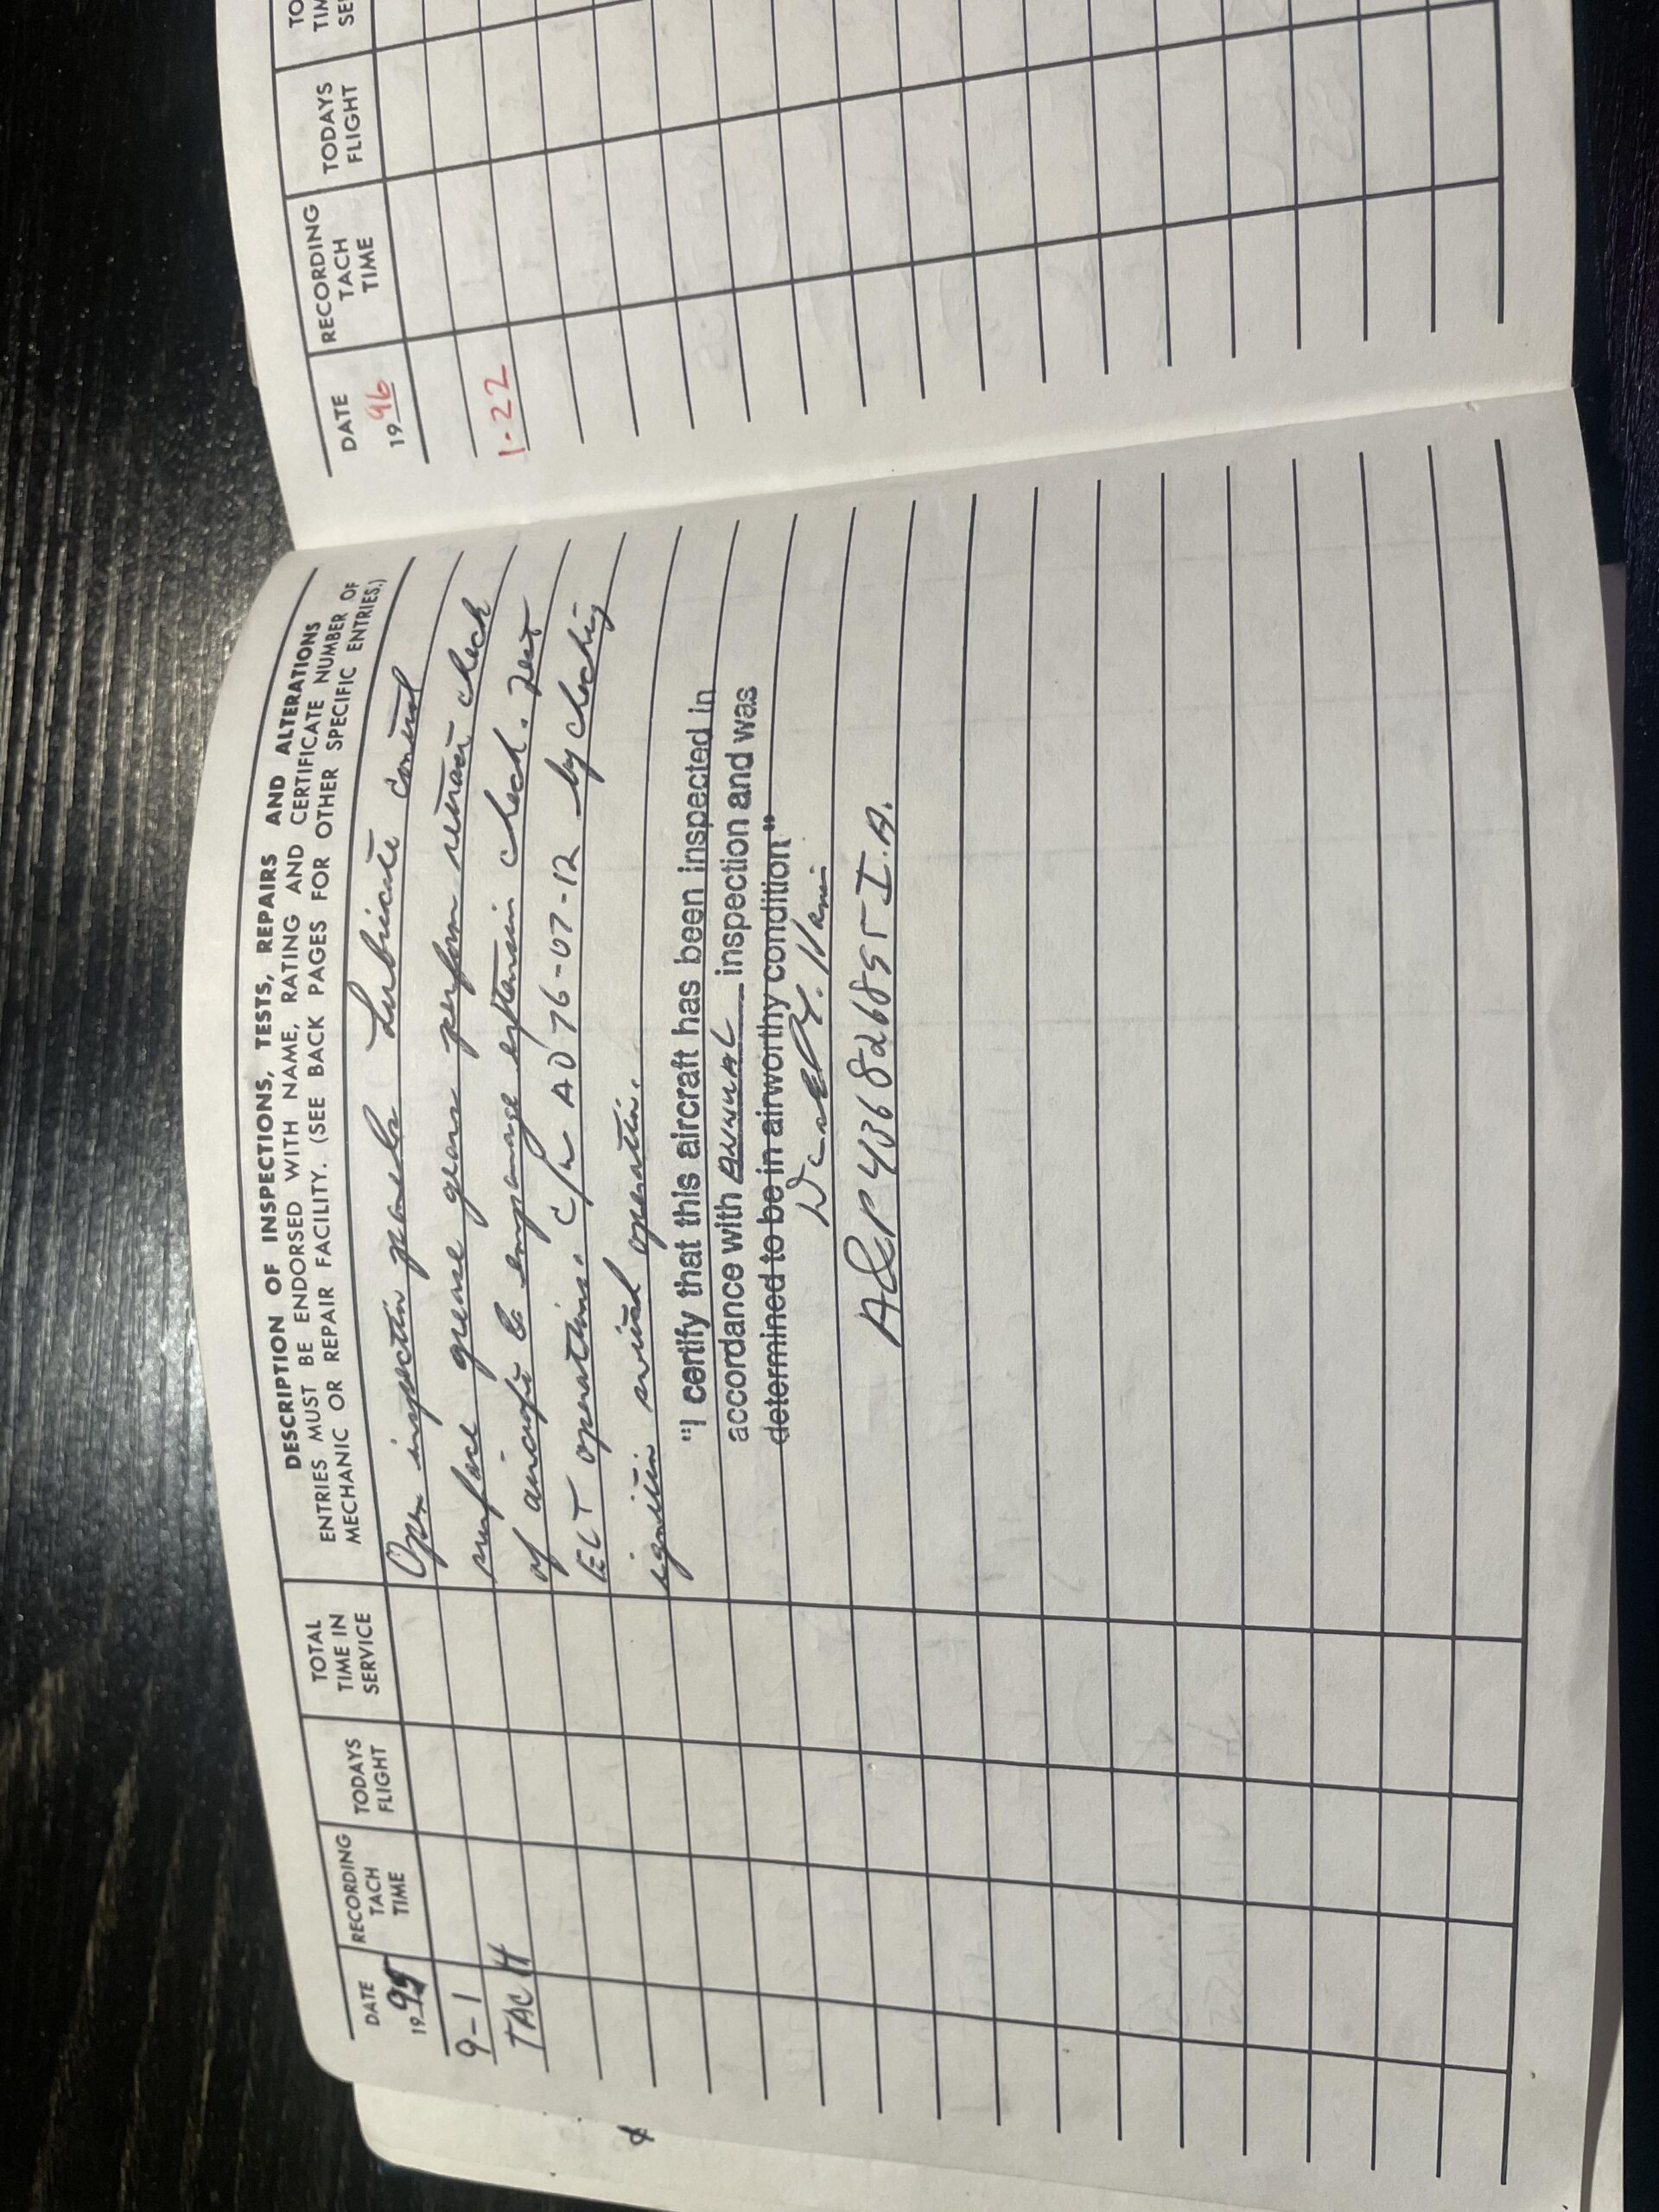 DATE
1995
RECORDING
TACH
TIME
TODAYS
FLIGHT
TOTAL
TIME IN
SERVICE
DESCRIPTION OF INSPECTIONS, TESTS, REPAIRS AND ALTERATIONS
ENTRIES MUST BE ENDORSED WITH NAME, RATING AND CERTIFICATE NUMBER OF
MECHANIC OR REPAIR FACILITY. (SEE BACK PAGES FOR OTHER SPECIFIC ENTRIES.)
Open inspection panels Lubricate control
9-1 surface grease gears perform retract check
TACH of aircraft & emergency extension check. Test
ELT operations. C/W AD 76-07-12 by checking
ignition switch operation.
"I certify that this aircraft has been inspected in
accordance with ANNUAL inspection and was
determined to be in airworthy condition"
A&P 436826895 I.A.
DATE
1996
RECORDING
TACH
TIME
TODAYS
FLIGHT
1-22